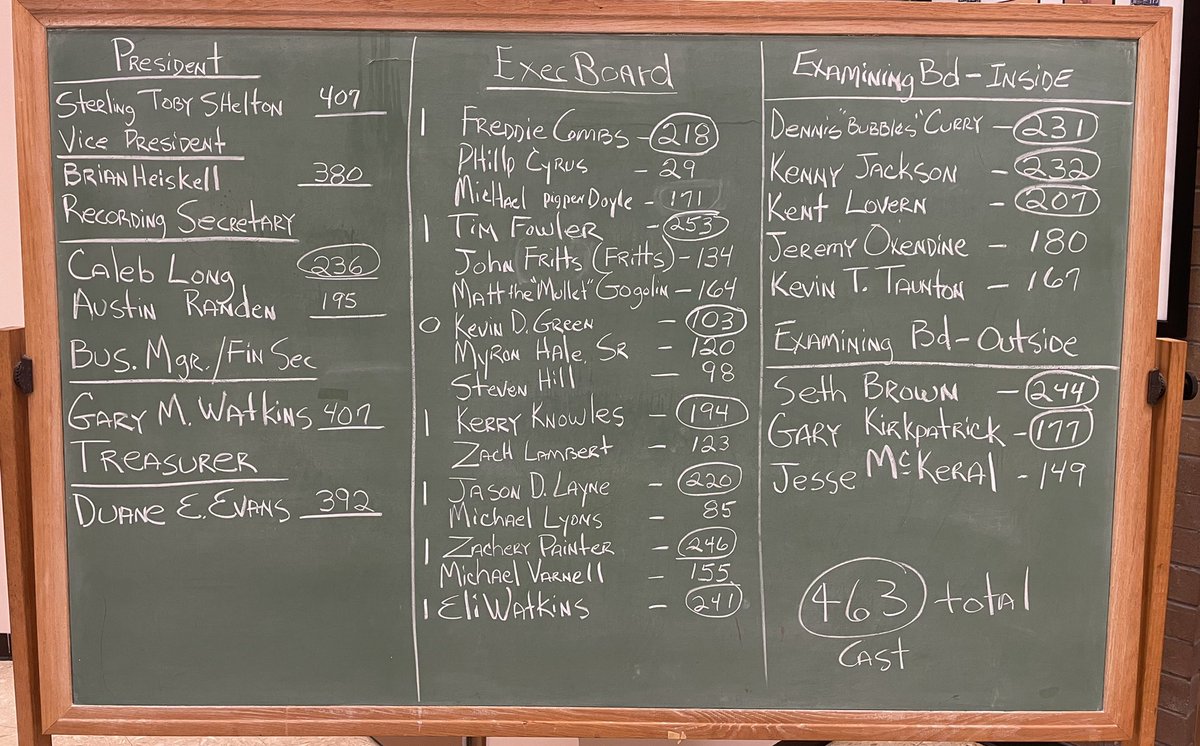 President
Sterling Toby Shelton 407
Vice President
Brian Heiskell 380
Recording Secretary
Caleb Long 236
Austin Randen 195
Bus. Mgr./Fin Sec
Gary M. Watkins 407
Treasurer
Duane E. Evans 392
Exec Board
1 Freddie Combs - 218
Philip Cyrus - 29
Michael pigpen Doyle - 171
1 Tim Fowler - 253
John Fritts (Fritts) - 134
Matt the "Mullet" Gogolin - 164
O Kevin D. Green - 103
Myron Hale, Sr - 120
Steven Hill - 98
1 Kerry Knowles - 194
Zach Lambert - 123
1 Jason D. Layne - 220
Michael Lyons - 85
1 Zachery Painter - 246
Michael Varnell - 155
1 Eli Watkins - 241
Examining Bd - Inside
Dennis "Bubbles" Curry - 231
Kenny Jackson - 232
Kent Lovern - 207
Jeremy Oxendine - 180
Kevin T. Taunton - 167
Examining Bd - Outside
Seth Brown - 244
Gary Kirkpatrick - 177
Jesse McKeral - 149
463 total
Cast